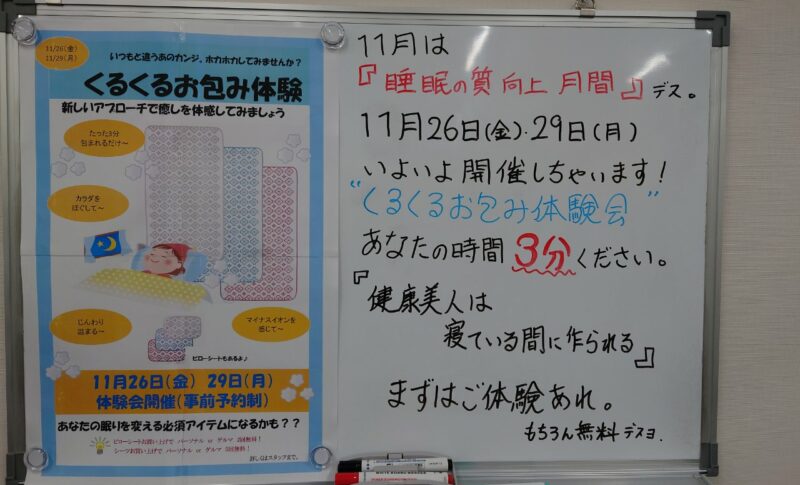 11/26(金)
11/29(月)
いつもと違うあのカンジ。ホカホカしてみませんか？
くるくるお包み体験
新しいアプローチで癒しを体感してみましょう
たった3分
包まれるだけ〜
カラダを
ほぐして〜
じんわり
温まる〜
マイナスイオンを
感じて〜
ピローシートもあるよ♪
11月26日(金) 29日(月)
体験会開催(事前予約制)
あなたの眠りを変える必須アイテムになるかも？？
ピローシートお買い上げで パーソナル or ゲルマ 2回無料！
シーツお買い上げで パーソナル or ゲルマ 5回無料！
詳しくはスタッフまで。
11月は
『睡眠の質向上月間』デス。
11月26日(金)・29日(月)
いよいよ開催しちゃいます！
“くるくるお包み体験会”
あなたの時間3分ください。
『健康美人は
寝ている間に作られる』
まずはご体験あれ。
もちろん無料デスヨ.